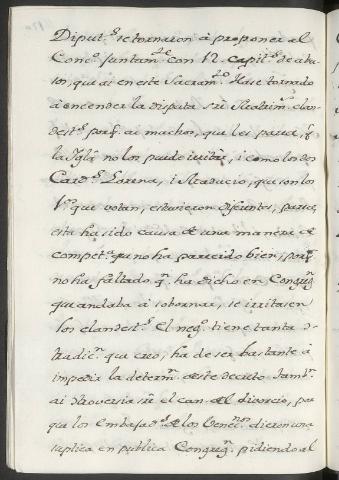 Diput.s se tornaron à proponer al
Conc.o juntam.te con 12 capit.s de abu-
sos, que ai en este Sacram.to Hase tornado
à encender la disputa sre Matrim.s clan-
dest.s porq. ai muchos, que les parece, q
la Igla no los puede irritar, i como los dos
Card.s Lorena, i Madrucio, que son los
P.s que votan, estuvieron diferentes, parece,
esta ha sido causa de una manera de
compet.a que no ha parecido bien, porq
no ha faltado q.n ha dicho en Congreg.n
que andaba à sobornar, se irritasen
los clandest.s El neg.o tiene tanta
tradic.n que creo, ha de ser bastante à
impedir la determ.n deste decreto. Tamb.n
ai controversia sre el can. del divorcio, por
que los Embajad.s de los Venec.nos dieron una
suplica en publica Congreg.n pidiendo al